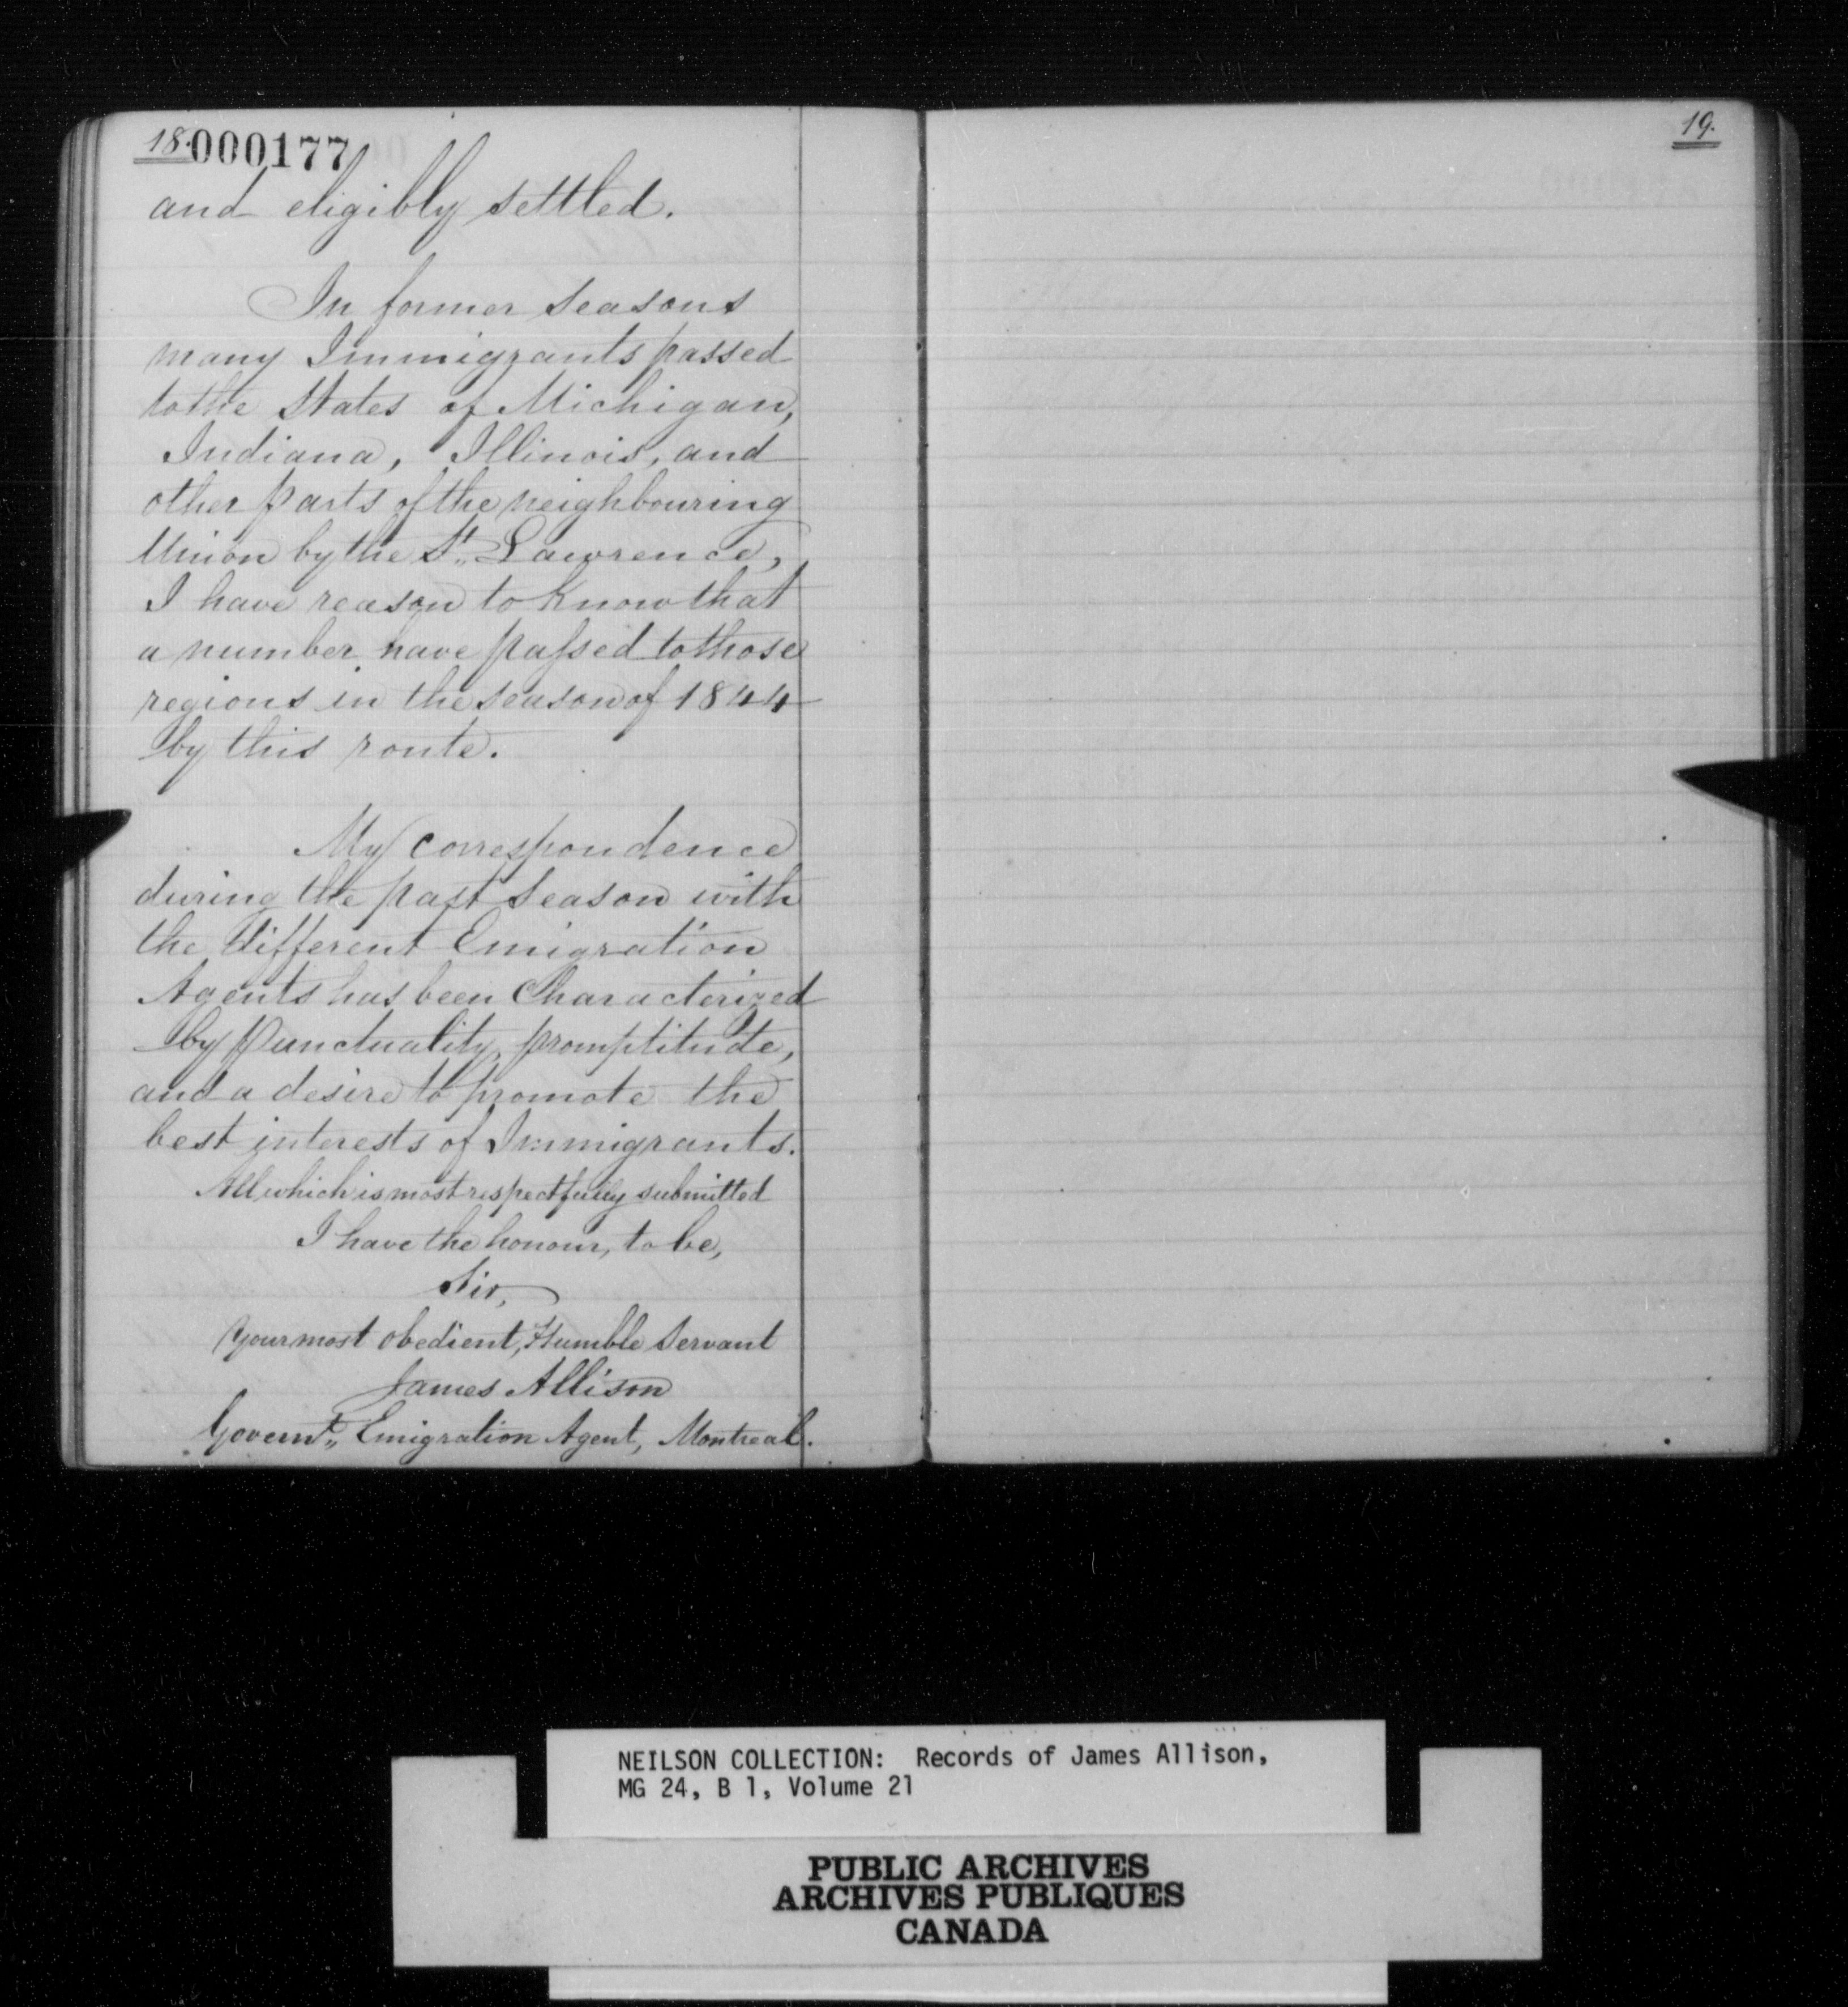 18. 000177
and eligibly settled.
In former seasons
many Immigrants passed
to the States of Michigan,
Indiana, Illinois, and
other parts of the neighbouring
Union by the St. Lawrence,
I have reason to know that
a number have passed to those
regions in the season of 1844
by this route.
My correspondence
during the past season with
the different Emigration
Agents has been Characterized
by Punctuality, promptitude,
and a desire to promote the
best interests of Immigrants.
All which is most respectfully submitted
I have the honour, to be,
Sir,
Your most obedient, Humble Servant
James Allison
Governt. Emigration Agent, Montreal.
19.
NEILSON COLLECTION: Records of James Allison,
MG 24, B 1, Volume 21
PUBLIC ARCHIVES
ARCHIVES PUBLIQUES
CANADA